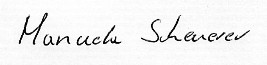 Manuela Scheuerer